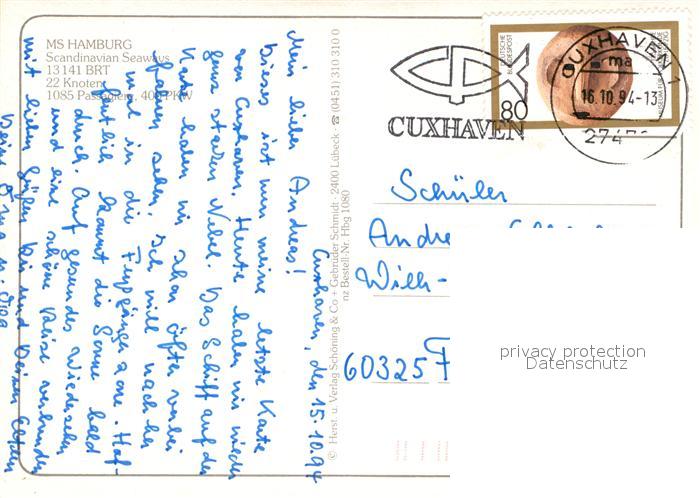 MS HAMBURG
Scandinavian Seaways
13 141 BRT
22 Knoten
1085 Passagiere, 400 PKW
Cuxhaven, den 15.10.94
Mein lieber Andreas!
Dieses ist nun meine letzte Karte
von Cuxhaven. Heute haben wir wieder
ganz starken Nebel. Das Schiff auf der
Karte haben wir schon öfter vorbei
fahren sehen. Ich will nachher
mal in die Fußgängerzone. Hof-
fentlich kommt die Sonne bald
durch. Auf gesundes Wiedersehen
und eine schöne Reise verbunden
mit lieben Grüßen Dir und Deinen Eltern
Deine Oma u. Opa
© Herst. u. Verlag Schöning & Co + Gebrüder Schmidt · 2400 Lübeck · ☎ (0451) 310 310 0
nz Bestell-Nr. Hbg 1080
CUXHAVEN
DEUTSCHE
BUNDESPOST
80
CUXHAVEN 1
ma
16.10.94-13
274
Schüler
Andre
Wilh-
60325 F
privacy protection
Datenschutz